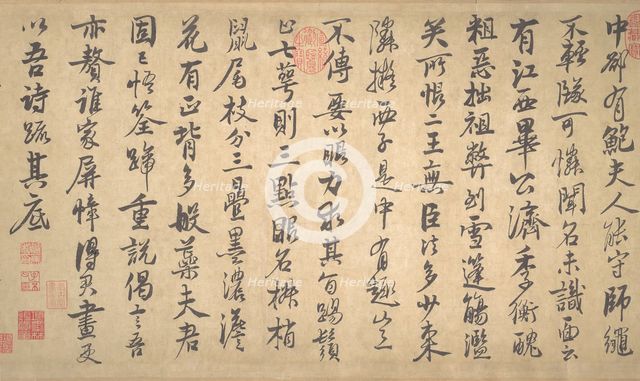 中郎有鮑夫人能守師繩
不輕墜可憐聞名未識面云
有江西畢公濟季衡醜
粗惡拙祖弊到雪蓬觴濫
矣所恨二王無臣法多少東
隣擬西子是中有趣豈
不傳要以眼力求其旨踢鬚
止七萼則三點眼名椒梢
鼠尾枝分三疊墨濃澹
花有正背多般蕊夫君
固已悟筌蹄重說偈言吾
亦贅誰家屏幛得君畫更
以吾詩疏其底
Heritage
Heritage
Heritage
Heritage
Heritage
Heritage
Heritage